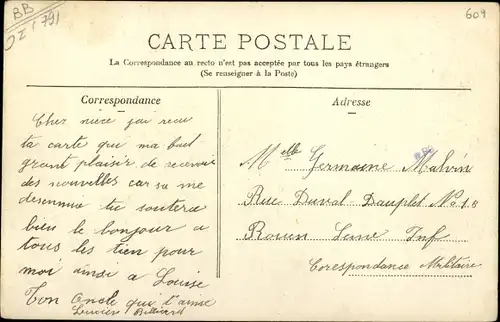 BB
OZ 1791
604
CARTE POSTALE
La Correspondance au recto n'est pas acceptée par tous les pays étrangers
(Se renseigner à la Poste)
Correspondance
Cher niece jai recu
ta carte qui ma bout
grant plaisir de recevoir
des nouvelles car sa me
desennue tu soutera
bien le bonjour a
tous les tien pour
moi ainsi a Louise
Ton Oncle qui t'aime
Adresse
Melle Germaine Malvin
Rue Duval Dauplet No 18
Rouen Seine Inf
Corespondance Militaire